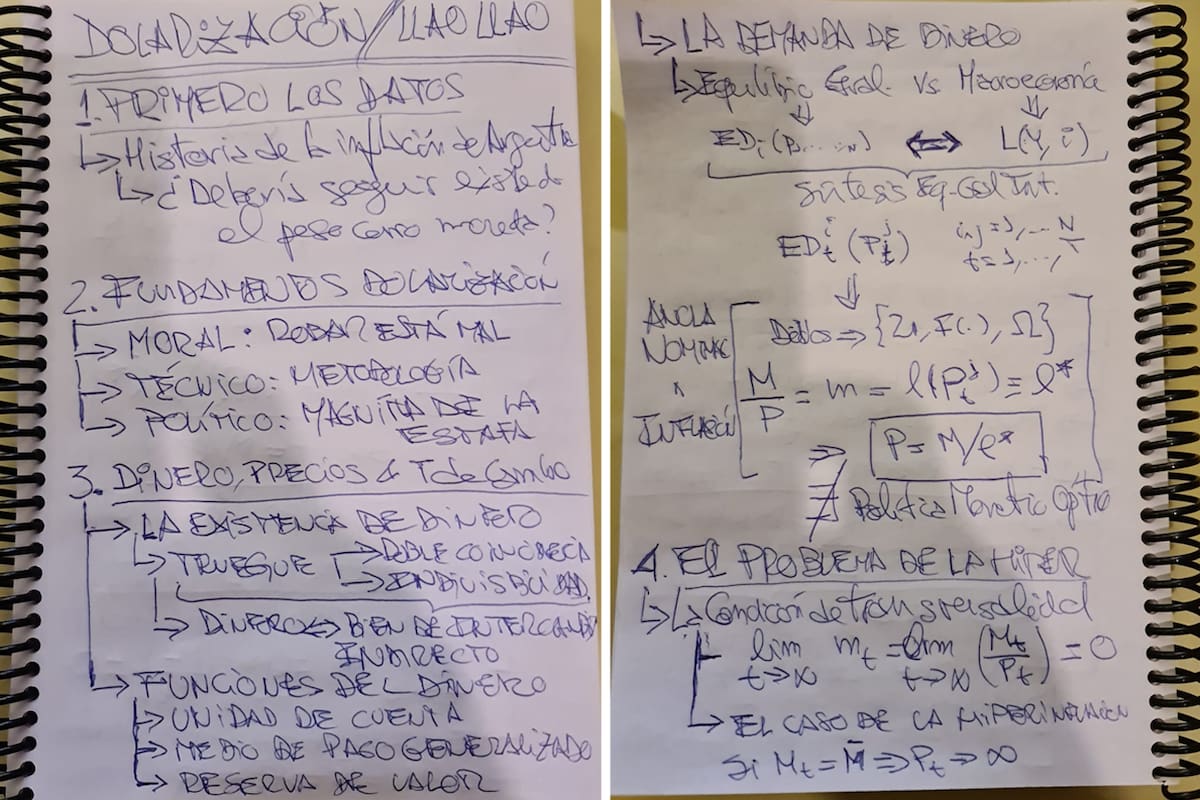 DOLARIZACIÓN/LLAO LLAO
1. PRIMERO LOS DATOS
↳ Historia de la inflación de Argentina
↳ ¿Debería seguir existiendo
el peso como moneda?
2. FUNDAMENTOS DOLARIZACIÓN
→ MORAL: ROBAR ESTÁ MAL
→ TÉCNICO: METODOLOGÍA
→ POLÍTICO: MAGNITUD DE LA
ESTAFA
3. DINERO, PRECIOS & T de Cambio
→ LA EXISTENCIA DE DINERO
↳ TRUEQUE → DOBLE COINCIDENCIA
→ INDIVISIBILIDAD
↳ DINERO ↔ BIEN DE INTERCAMBIO
INDIRECTO
→ FUNCIONES DEL DINERO
→ UNIDAD DE CUENTA
→ MEDIO DE PAGO GENERALIZADO
→ RESERVA DE VALOR
↳ LA DEMANDA DE DINERO
↳ Equilibrio Gral. vs Macroeconomía
⇓ ⇓
EDi (P1, ..., N) ⇔ L(Y, i)
Síntesis Eq. Gral Int.
ED_t^i (P_t^j) i,j = 1, ... N
t = 1, ..., T
⇓
ANCLA
NOMINAL
INFLACIÓN
Dados ⇒ {U, F(.), Ω}
M/P = m = l(P_t^j) ≡ l*
⇒ P = M/l*
∄ Política Monetaria Óptima
4. EL PROBLEMA DE LA HIPER
↳ Condición de transversalidad
lim t→∞ m_t = lim t→∞ (M_t/P_t) = 0
↳ EL CASO DE LA HIPERINFLACIÓN
Si M_t = M̄ ⇒ P_t ⇒ ∞